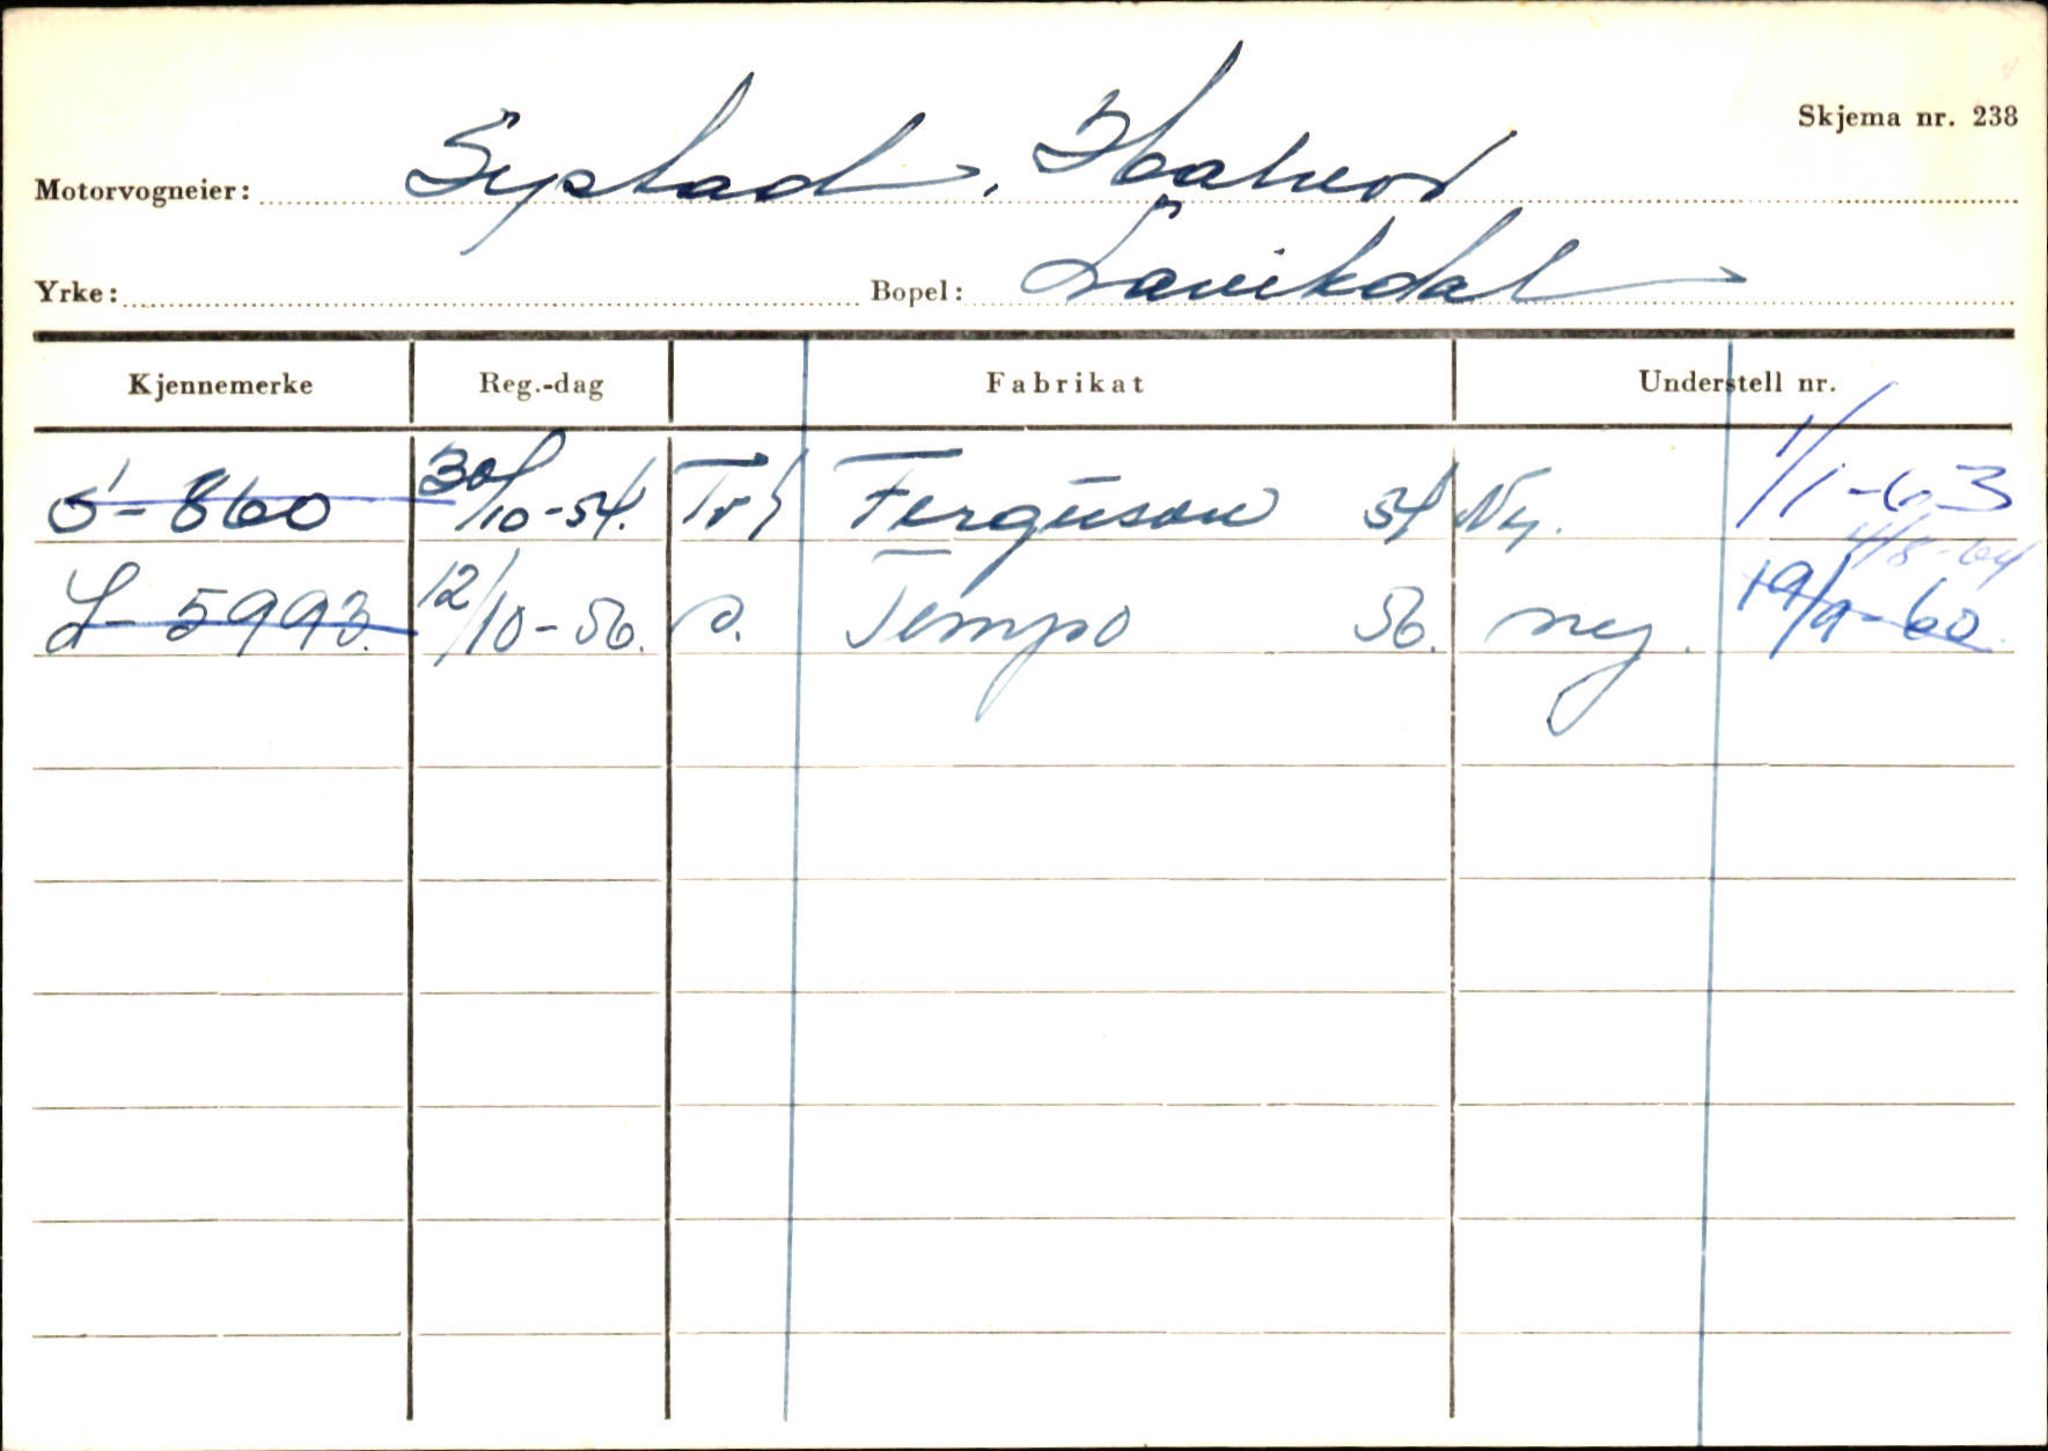 Skjema nr. 238
Motorvogneier: Systad, Halvor
Yrke: Bopel: Lavikdal
Kjennemerke Reg.-dag Fabrikat Understell nr.
S-860 30/10-54. Tr Ferguson 54 Ny. 1/1-63
4/8-64
S-5993. 12/10-56. s. Tempo 56. ny. 19/9-60.